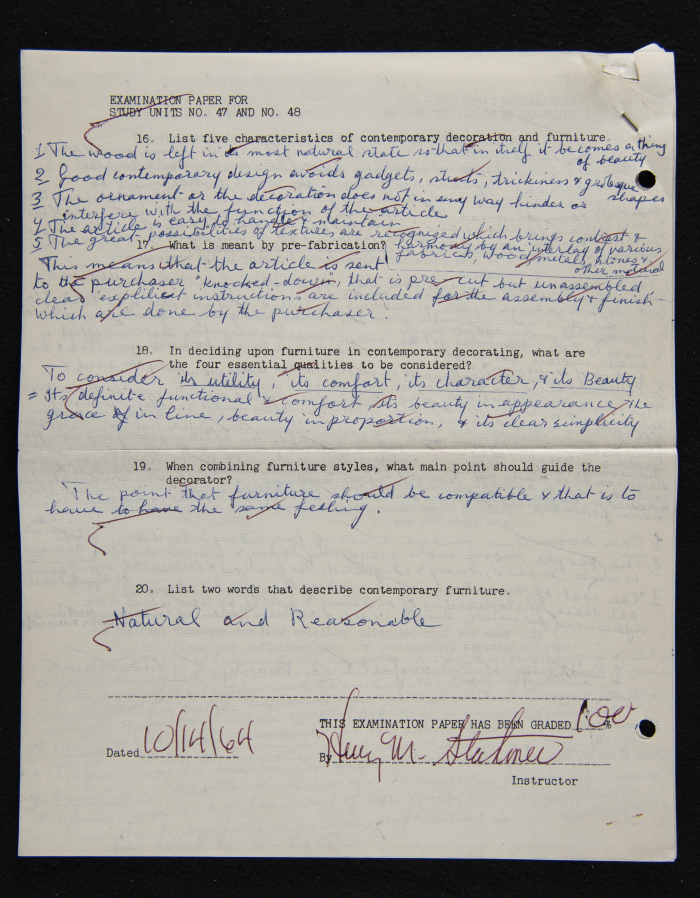 EXAMINATION PAPER FOR
STUDY UNITS NO. 47 AND NO. 48
16. List five characteristics of contemporary decoration and furniture.
1 The wood is left in its most natural state so that in itself it becomes a thing
of beauty
2 Good contemporary design avoids gadgets, struts, trickiness & grotesque
shapes
3 The ornament or the decoration does not in any way hinder or
interfere with the function of the article
4 The article is easy to handle & maintain
5 The great possibilities of textures are recognised which brings contrast &
harmony by an interlay of various
fabrics, wood, metals, stones &
other material
17. What is meant by pre-fabrication?
This means that the article is sent
to the purchaser "knocked-down", that is pre cut but unassembled
clear explilicit instructions are included for the assembly & finish
which are done by the purchaser.
18. In deciding upon furniture in contemporary decorating, what are
the four essential qualities to be considered?
To consider its utility, its comfort, its character, & its Beauty
= Its definite functional & comfort, its beauty in appearance, the
grace of in line, beauty in proportion, & its clear simplicity
19. When combining furniture styles, what main point should guide the
decorator?
The point that furniture should be compatible & that is to
have to have the same feeling.
20. List two words that describe contemporary furniture.
Natural and Reasonable
THIS EXAMINATION PAPER HAS BEEN GRADED 100%
Dated 10/14/64
By M.
Instructor